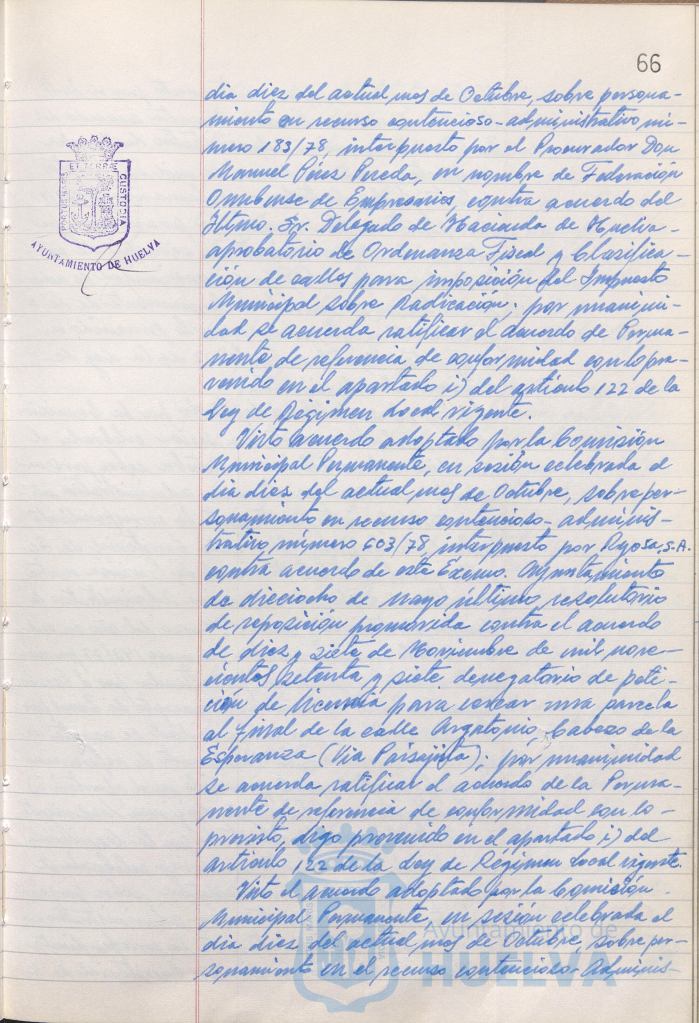 66
PORTUS MARIS
ET TERRAE
CUSTODIA
AYUNTAMIENTO DE HUELVA
dia diez del actual mes de Octubre, sobre persona-
miento en recurso contencioso-administrativo nú-
mero 183/78, interpuesto por el Procurador Don
Manuel Pérez Pereda, en nombre de Federación
Onubense de Empresarios, contra acuerdo del
Iltmo. Sr. Delegado de Hacienda de Huelva-
aprobatorio de Ordenanza Fiscal y Clasifica-
ción de calles para imposición del Impuesto
Municipal sobre Radicación; por unanimi-
dad se acuerda ratificar el acuerdo de Perma-
nente de referencia de conformidad con lo pre-
venido en el apartado i) del artículo 122 de la
Ley de Régimen Local vigente.
Visto acuerdo adoptado por la Comisión
Municipal Permanente, en sesión celebrada el
dia diez del actual mes de Octubre, sobre per-
sonamiento en recurso contencioso-adminis-
trativo número 603/78, interpuesto por S.A.
contra acuerdo de este Excmo. Ayuntamiento
de dieciocho de mayo último resolutorio
de reposición promovida contra el acuerdo
de diez y siete de Noviembre de mil nove-
cientos setenta y siete denegatorio de peti-
ción de licencia para cercar una parcela
al final de la calle Cabezo de la
Esperanza (Via Paisajista); por unanimidad
se acuerda ratificar el acuerdo de la Perma-
nente de referencia de conformidad con lo-
previsto, digo prevenido en el apartado i) del
artículo 122 de la Ley de Régimen Local vigente.
Visto el acuerdo adoptado por la Comisión-
Municipal Permanente, en sesión celebrada el
dia diez del actual mes de Octubre, sobre per-
sonamiento en el recurso contencioso-Adminis-
Ayuntamiento de
HUELVA